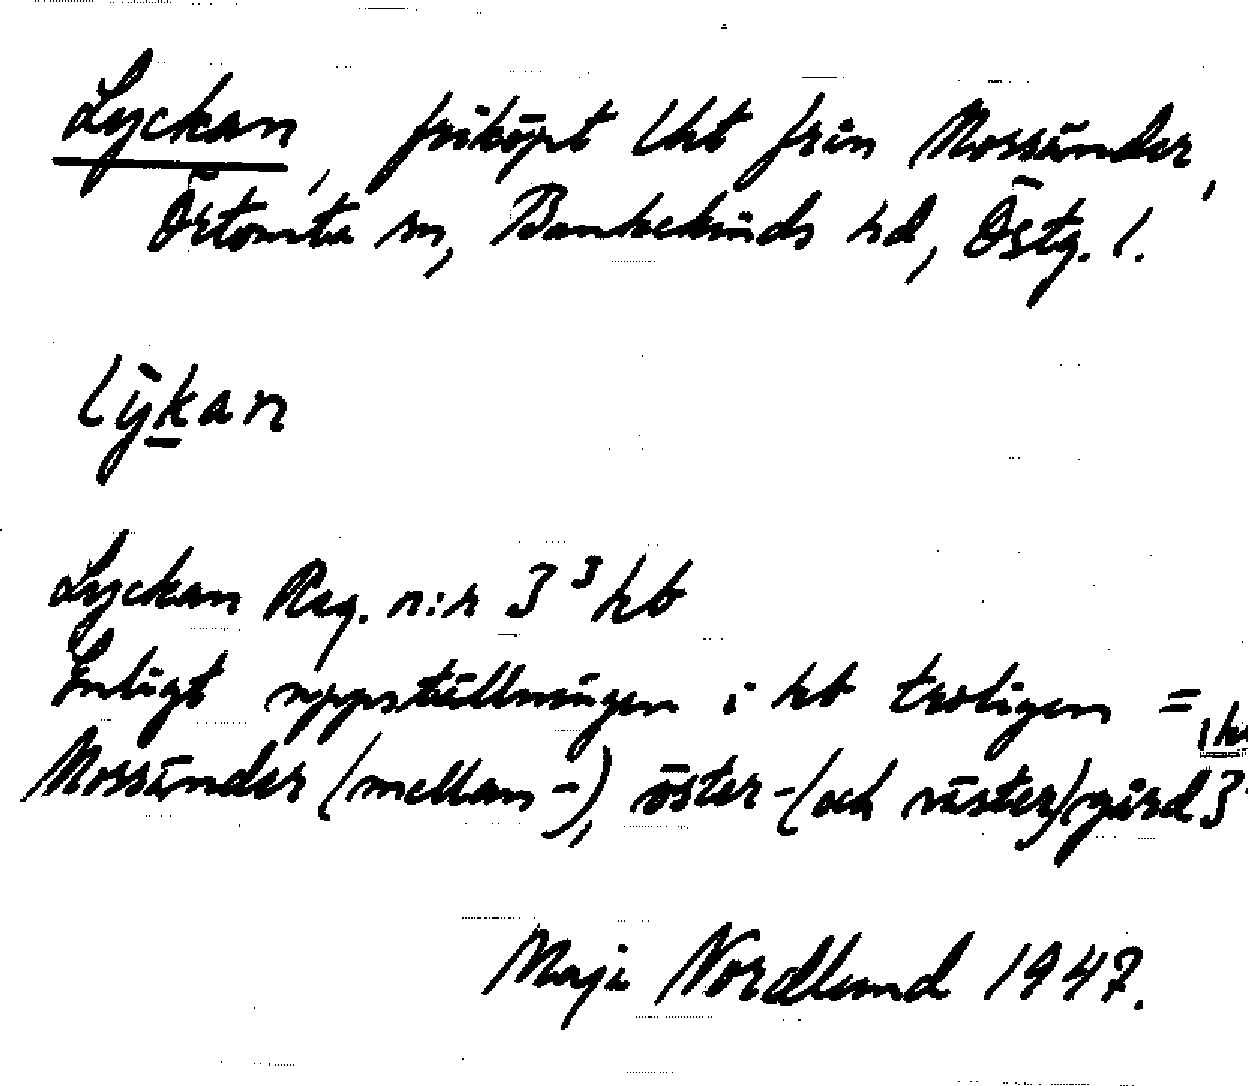 Lyckan, friköpt lht från Mossänder,
Örtomta sn, Bankekinds hd, Östg. l.
lỳkan
Lyckan Reg. n:r 3³ hb
Enligt uppställningen i hb troligen =
Mossänder (mellan-), öster- (och väster) gård 3
Maji Nordlund 1947.